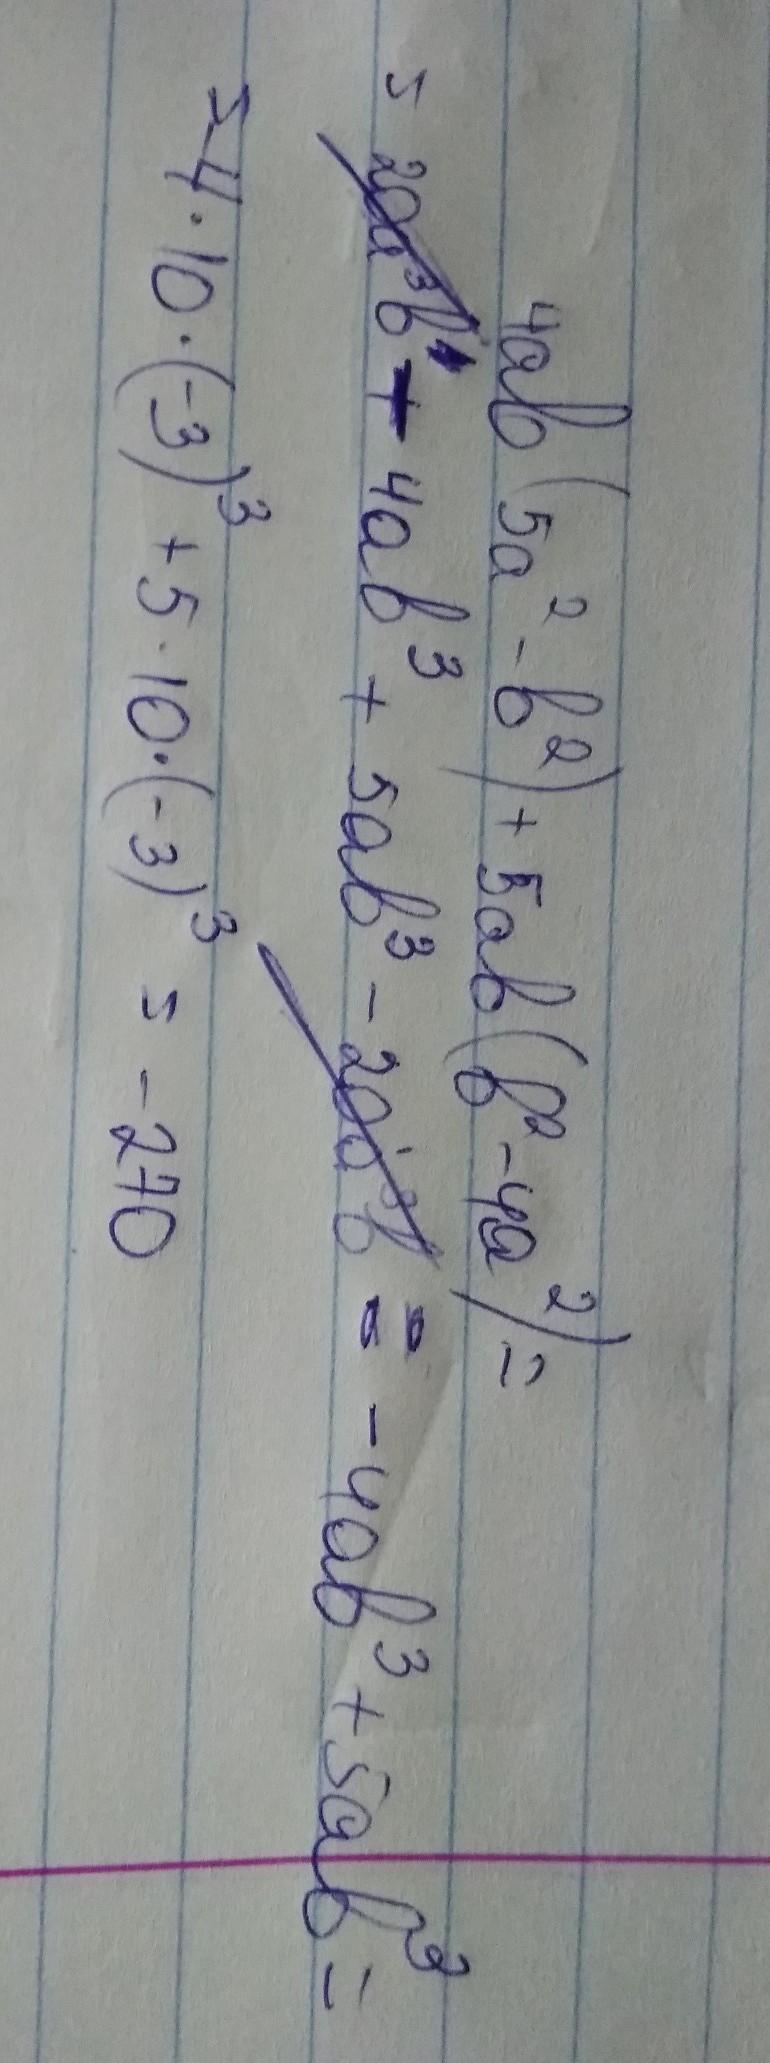 4ab(5a² - b²) + 5ab(b² - 4a²) =
= 20a³b - 4ab³ + 5ab³ - 20a³b = -4ab³ + 5ab³ =
= -4·10·(-3)³ + 5·10·(-3)³ = -270